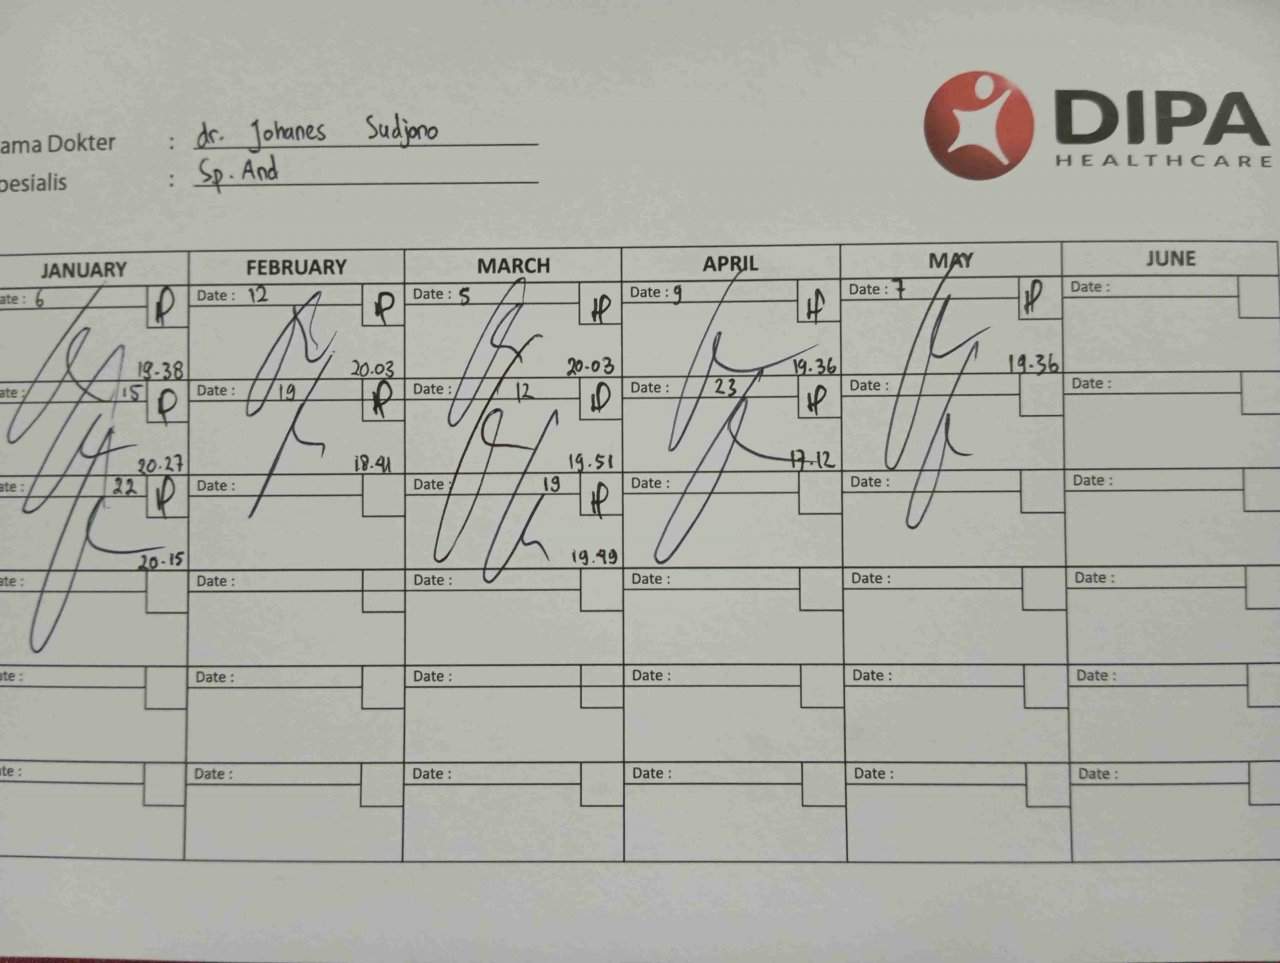 DIPA
HEALTHCARE
ama Dokter : dr. Johanes Sudjono
pesialis : Sp. And
JANUARY FEBRUARY MARCH APRIL MAY JUNE
ate : 6 Date : 12 Date : 5 Date : 9 Date : 7 Date :
19.38 20.03 20.03 19.36 19.36
ate : 15 Date : 19 Date : 12 Date : 23 Date : Date :
20.27 18.41 19.51 17.12
ate : 22 Date : Date : 19 Date : Date : Date :
20.15 19.49
ate : Date : Date : Date : Date : Date :
ate : Date : Date : Date : Date : Date :
ate : Date : Date : Date : Date : Date :